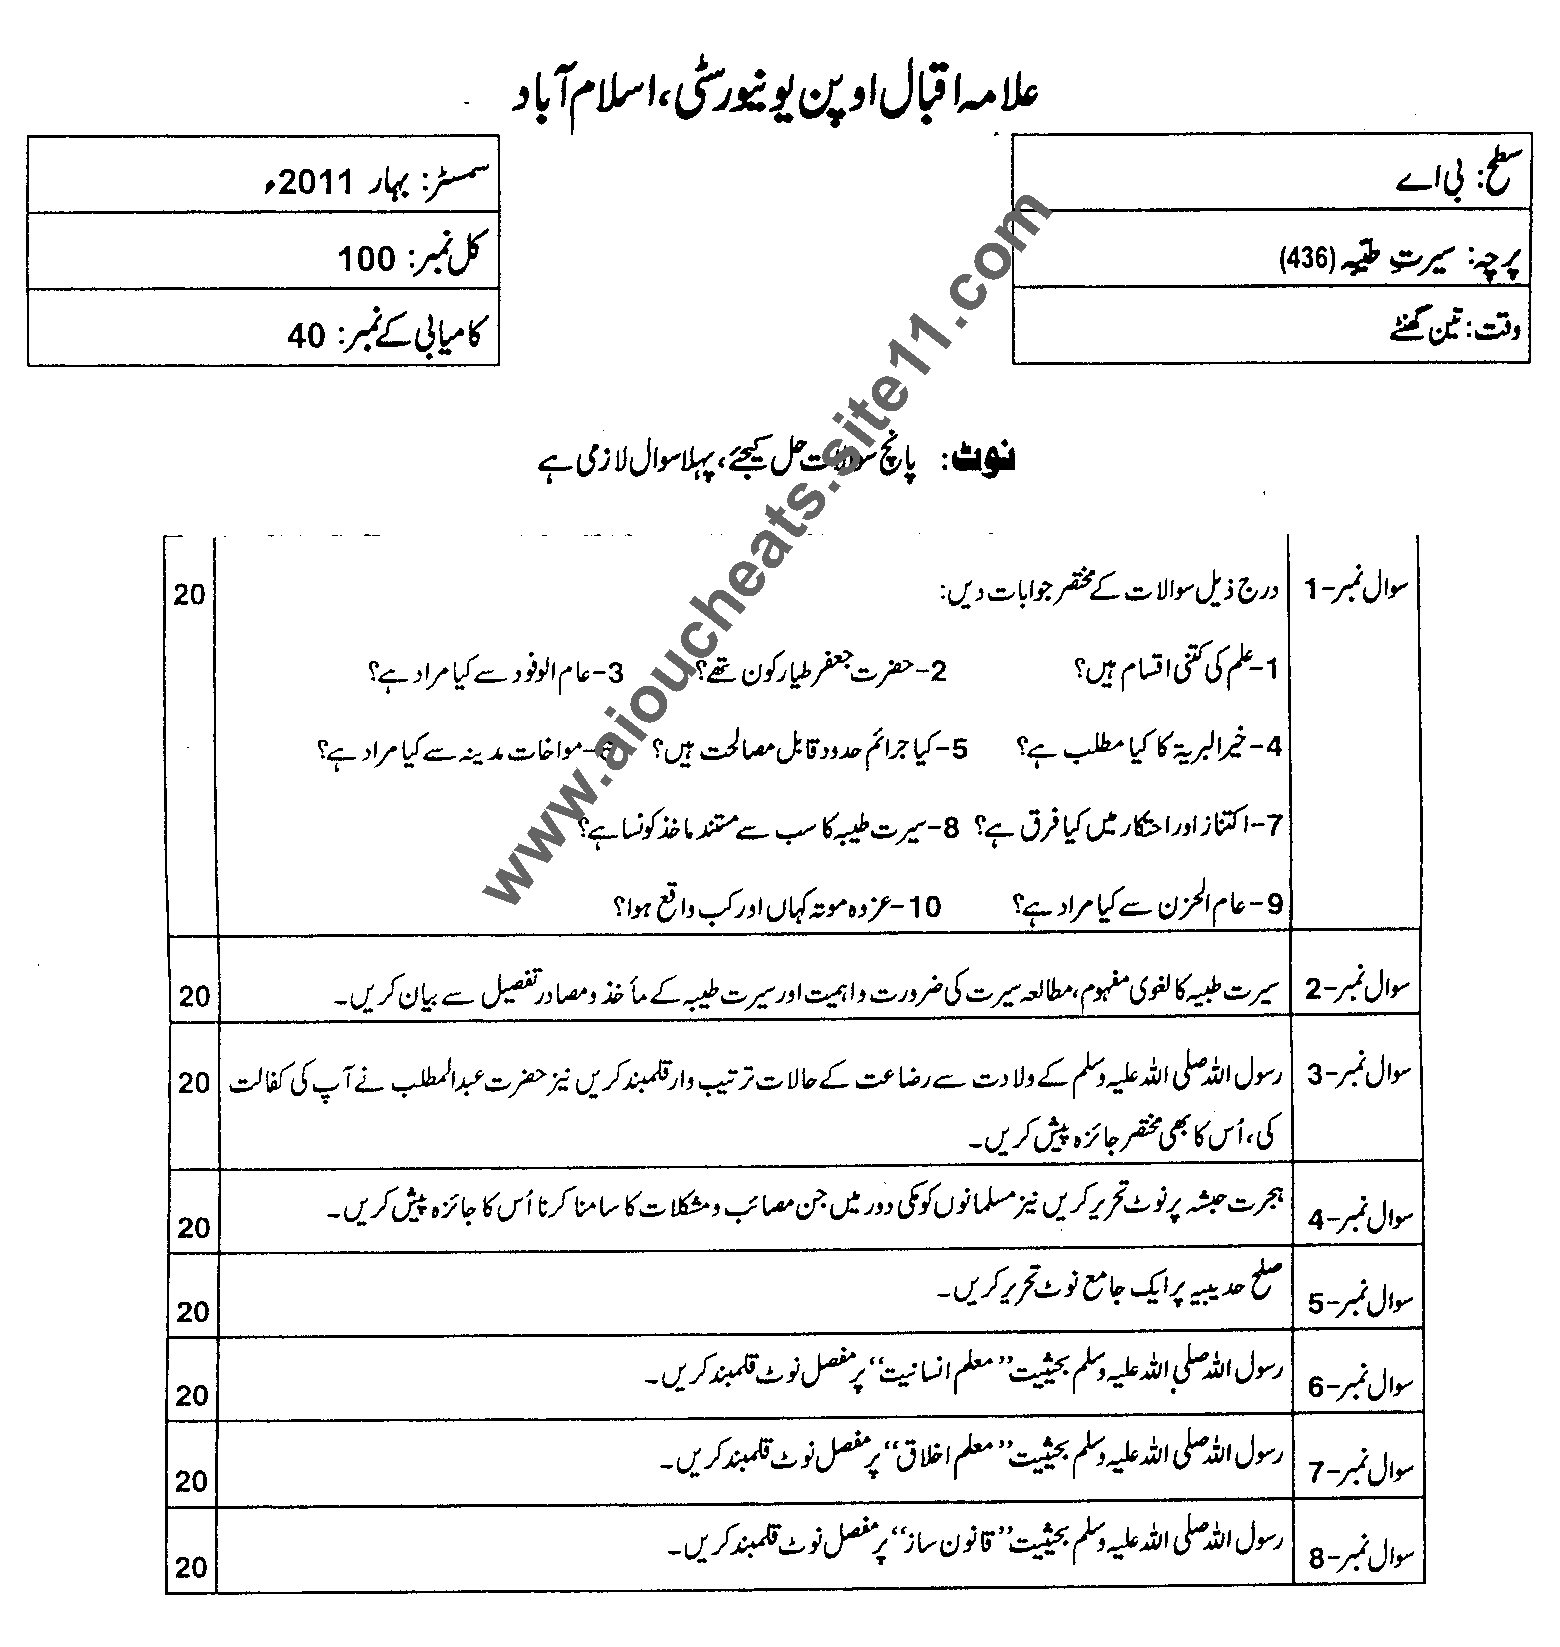 علامہ اقبال اوپن یونیورسٹی، اسلام آباد
سطح: بی اے
سمسٹر: بہار 2011ء
پرچہ: سیرتِ طیّبہ (436)
کل نمبر: 100
وقت: تین گھنٹے
کامیابی کے نمبر: 40
نوٹ: پانچ سوالات حل کیجئے، پہلا سوال لازمی ہے
سوال نمبر-1 درج ذیل سوالات کے مختصر جوابات دیں: 20
1-علم کی کتنی اقسام ہیں؟ 2-حضرت جعفر طیار کون تھے؟ 3-عام الوفود سے کیا مراد ہے؟
4-خیر البریۃ کا کیا مطلب ہے؟ 5-کیا جرائم حدود قابل مصالحت ہیں؟ 6-مواخات مدینہ سے کیا مراد ہے؟
7-اکتناز اور احتکار میں کیا فرق ہے؟ 8-سیرت طیبہ کا سب سے مستند ماخذ کونسا ہے؟
9-عام الحزن سے کیا مراد ہے؟ 10-عزوہ موتہ کہاں اور کب واقع ہوا؟
سوال نمبر-2 سیرت طیبہ کا لغوی مفہوم، مطالعہ سیرت کی ضرورت و اہمیت اور سیرت طیبہ کے مأخذ و مصادر تفصیل سے بیان کریں۔ 20
سوال نمبر-3 رسول اللہ صلی اللہ علیہ وسلم کے ولادت سے رضاعت کے حالات ترتیب وار قلمبند کریں نیز حضرت عبدالمطلب نے آپ کی کفالت 20
کی، اُس کا بھی مختصر جائزہ پیش کریں۔
سوال نمبر-4 ہجرت حبشہ پر نوٹ تحریر کریں نیز مسلمانوں کو مکی دور میں جن مصائب و مشکلات کا سامنا کرنا اُس کا جائزہ پیش کریں۔ 20
سوال نمبر-5 صلح حدیبیہ پر ایک جامع نوٹ تحریر کریں۔ 20
سوال نمبر-6 رسول اللہ صلی اللہ علیہ وسلم بحیثیت ”معلم انسانیت“ پر مفصل نوٹ قلمبند کریں۔ 20
سوال نمبر-7 رسول اللہ صلی اللہ علیہ وسلم بحیثیت ”معلم اخلاق“ پر مفصل نوٹ قلمبند کریں۔ 20
سوال نمبر-8 رسول اللہ صلی اللہ علیہ وسلم بحیثیت ”قانون ساز“ پر مفصل نوٹ قلمبند کریں۔ 20
www.aioucheats.site11.com